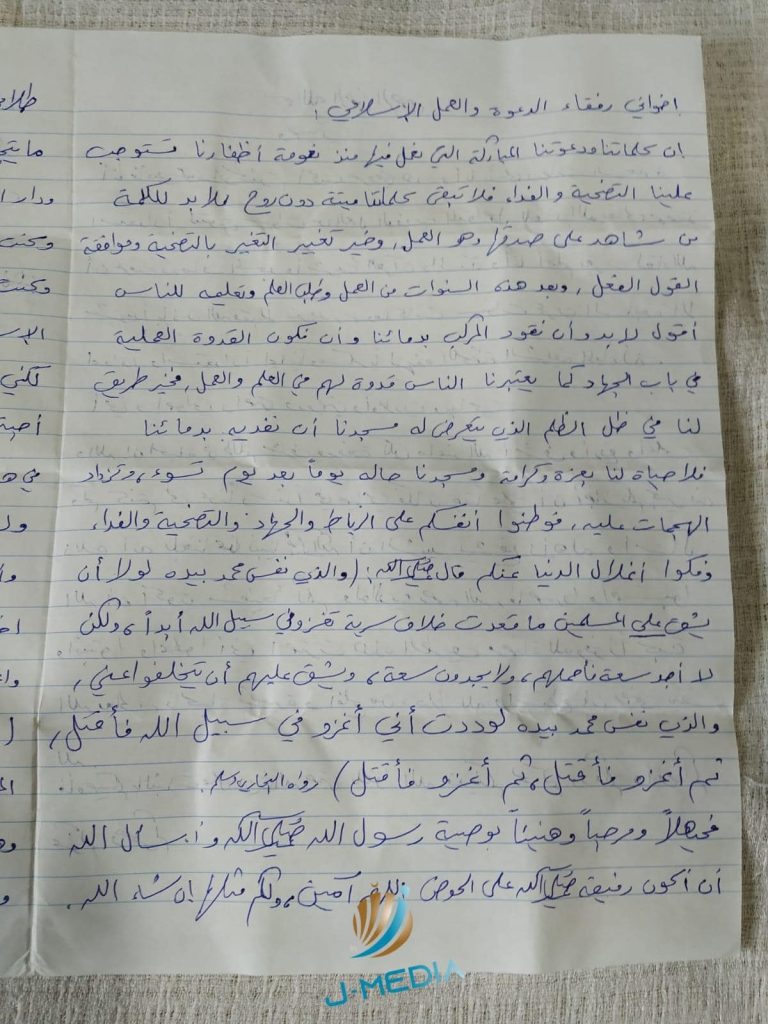 اخواني رفقاء الدعوة والعمل الإسلامي :
إن كلماتنا ودعوتنا المباركة التي نعمل فيها منذ نعومة أظفارنا تستوجب
علينا التضحية والفداء فلا تبقى كلماتنا ميتة دون روح فلا بد للكلمة
من شاهد على صدقها وهو العمل، وخير تغيير التغير بالتضحية وموافقة
القول الفعل، وبعد هذه السنوات من العمل وطلب العلم وتعليمه للناس
أقول لا بد وأن نقود المركب بدمائنا وأن نكون القدوة العملية
في باب الجهاد كما يعتبرنا الناس قدوة لهم في العلم والعمل، فخير طريق
لنا في ظل الظلم الذي يتعرض له مسجدنا أن نفديه بدمائنا
فلا حياة لنا بعزة وكرامة ومسجدنا حاله يوماً بعد يوم تسوء، وتزداد
الهجمات عليه، فوطنوا أنفسكم على الرباط والجهاد والتضحية والفداء
وفكوا أغلال الدنيا عنكم قال ﷺ: (والذي نفس محمد بيده لولا أن
يشق على المسلمين ما قعدت خلاف سرية تغزو في سبيل الله أبداً، ولكن
لا أجد سعة فأحملهم، ولا يجدون سعة، ويشق عليهم أن يتخلفوا عني،
والذي نفس محمد بيده لوددت أني أغزو في سبيل الله فأقتل،
ثم أغزو فأقتل، ثم أغزو فأقتل) رواه البخاري ومسلم.
فحيهلاً ومرحباً وهنيئاً بوصية رسول الله ﷺ وأسأل الله
أن أكون رفيقه ﷺ على الحوض آمين، ولكم مثلها إن شاء الله.
J-MEDIA